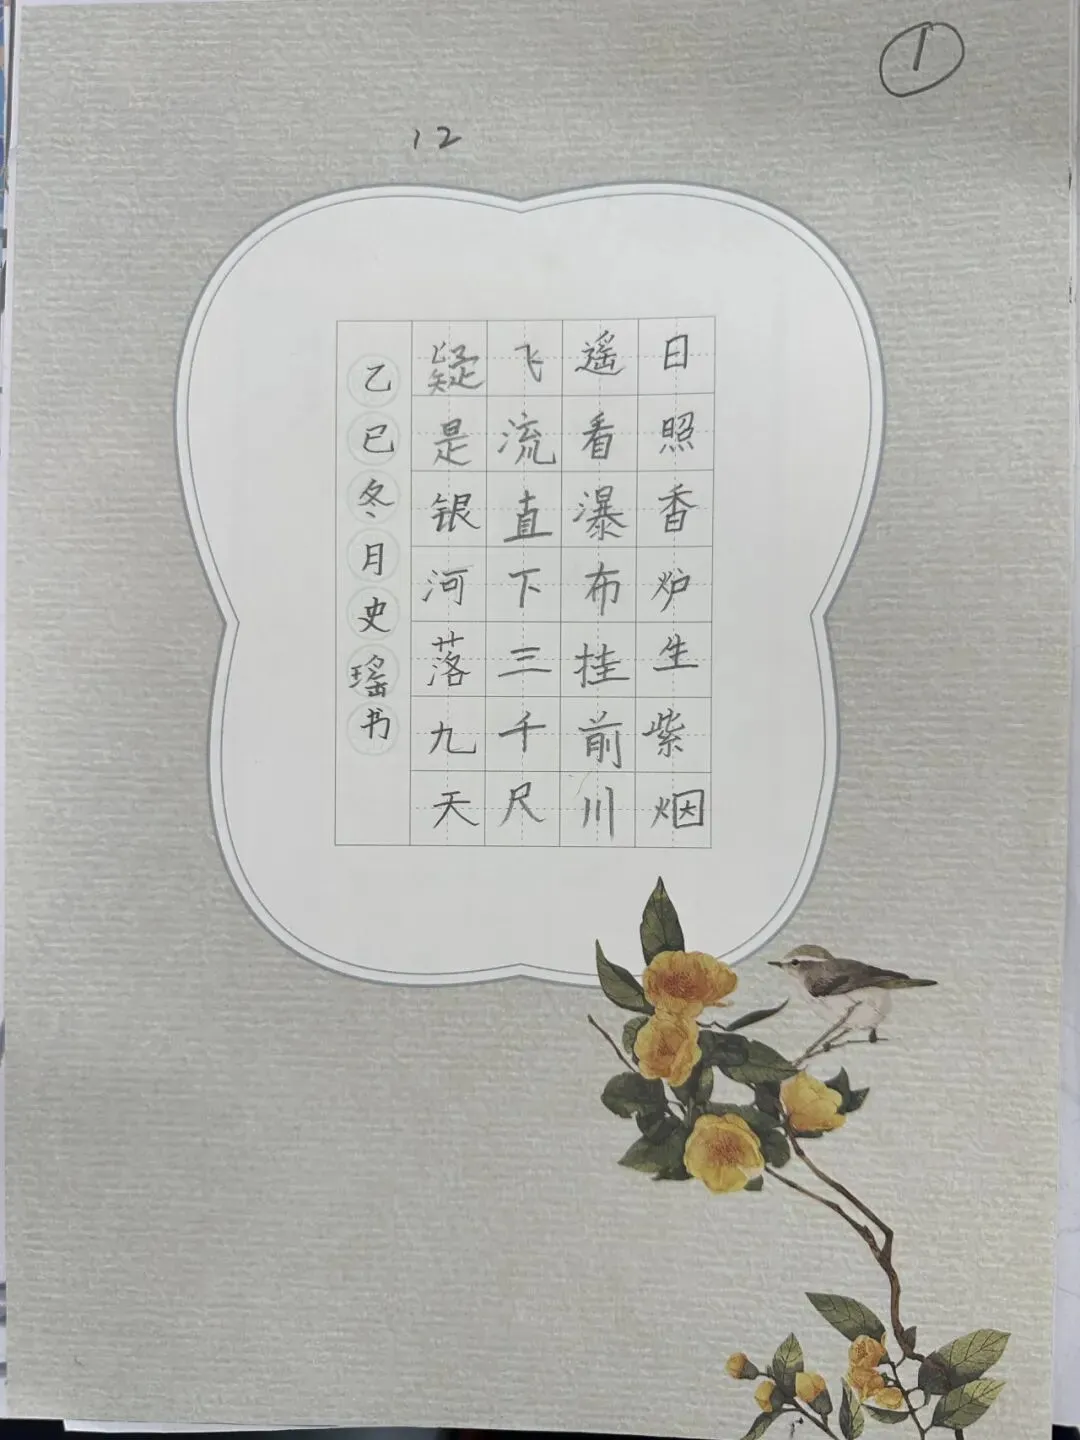 ①
12
日照香炉生紫烟
遥看瀑布挂前川
飞流直下三千尺
疑是银河落九天
乙巳冬月史瑶书